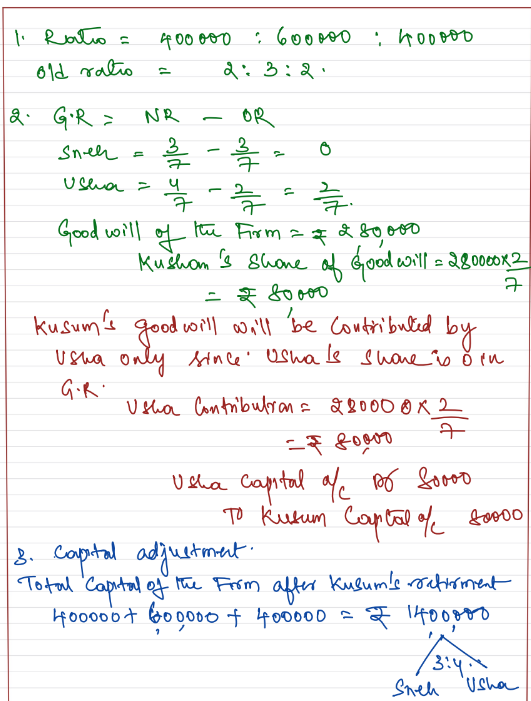 1. Ratio = 400000 : 600000 : 400000
Old ratio = 2 : 3 : 2.
2. G.R = NR - OR
Sneh = 3/7 - 3/7 = 0
Usha = 4/7 - 2/7 = 2/7.
Goodwill of the Firm = ₹ 280,000
Kusham's Share of Goodwill = 280000 x 2/7
= ₹ 80,000
Kusum's goodwill will be Contributed by
Usha only since Usha's share is 0 in
G.R.
Usha Contribution = 280000 x 2/7
= ₹ 80,000
Usha Capital a/c Dr 80000
To Kusum Capital a/c 80000
3. Capital adjustment.
Total Capital of the Firm after Kusum's retirment
400000 + 600,000 + 400000 = ₹ 1400,000
3:4.
Sneh Usha